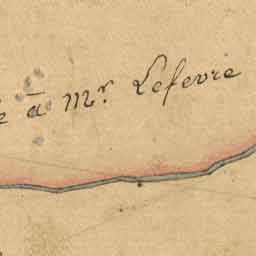 à Mr. Lefevre